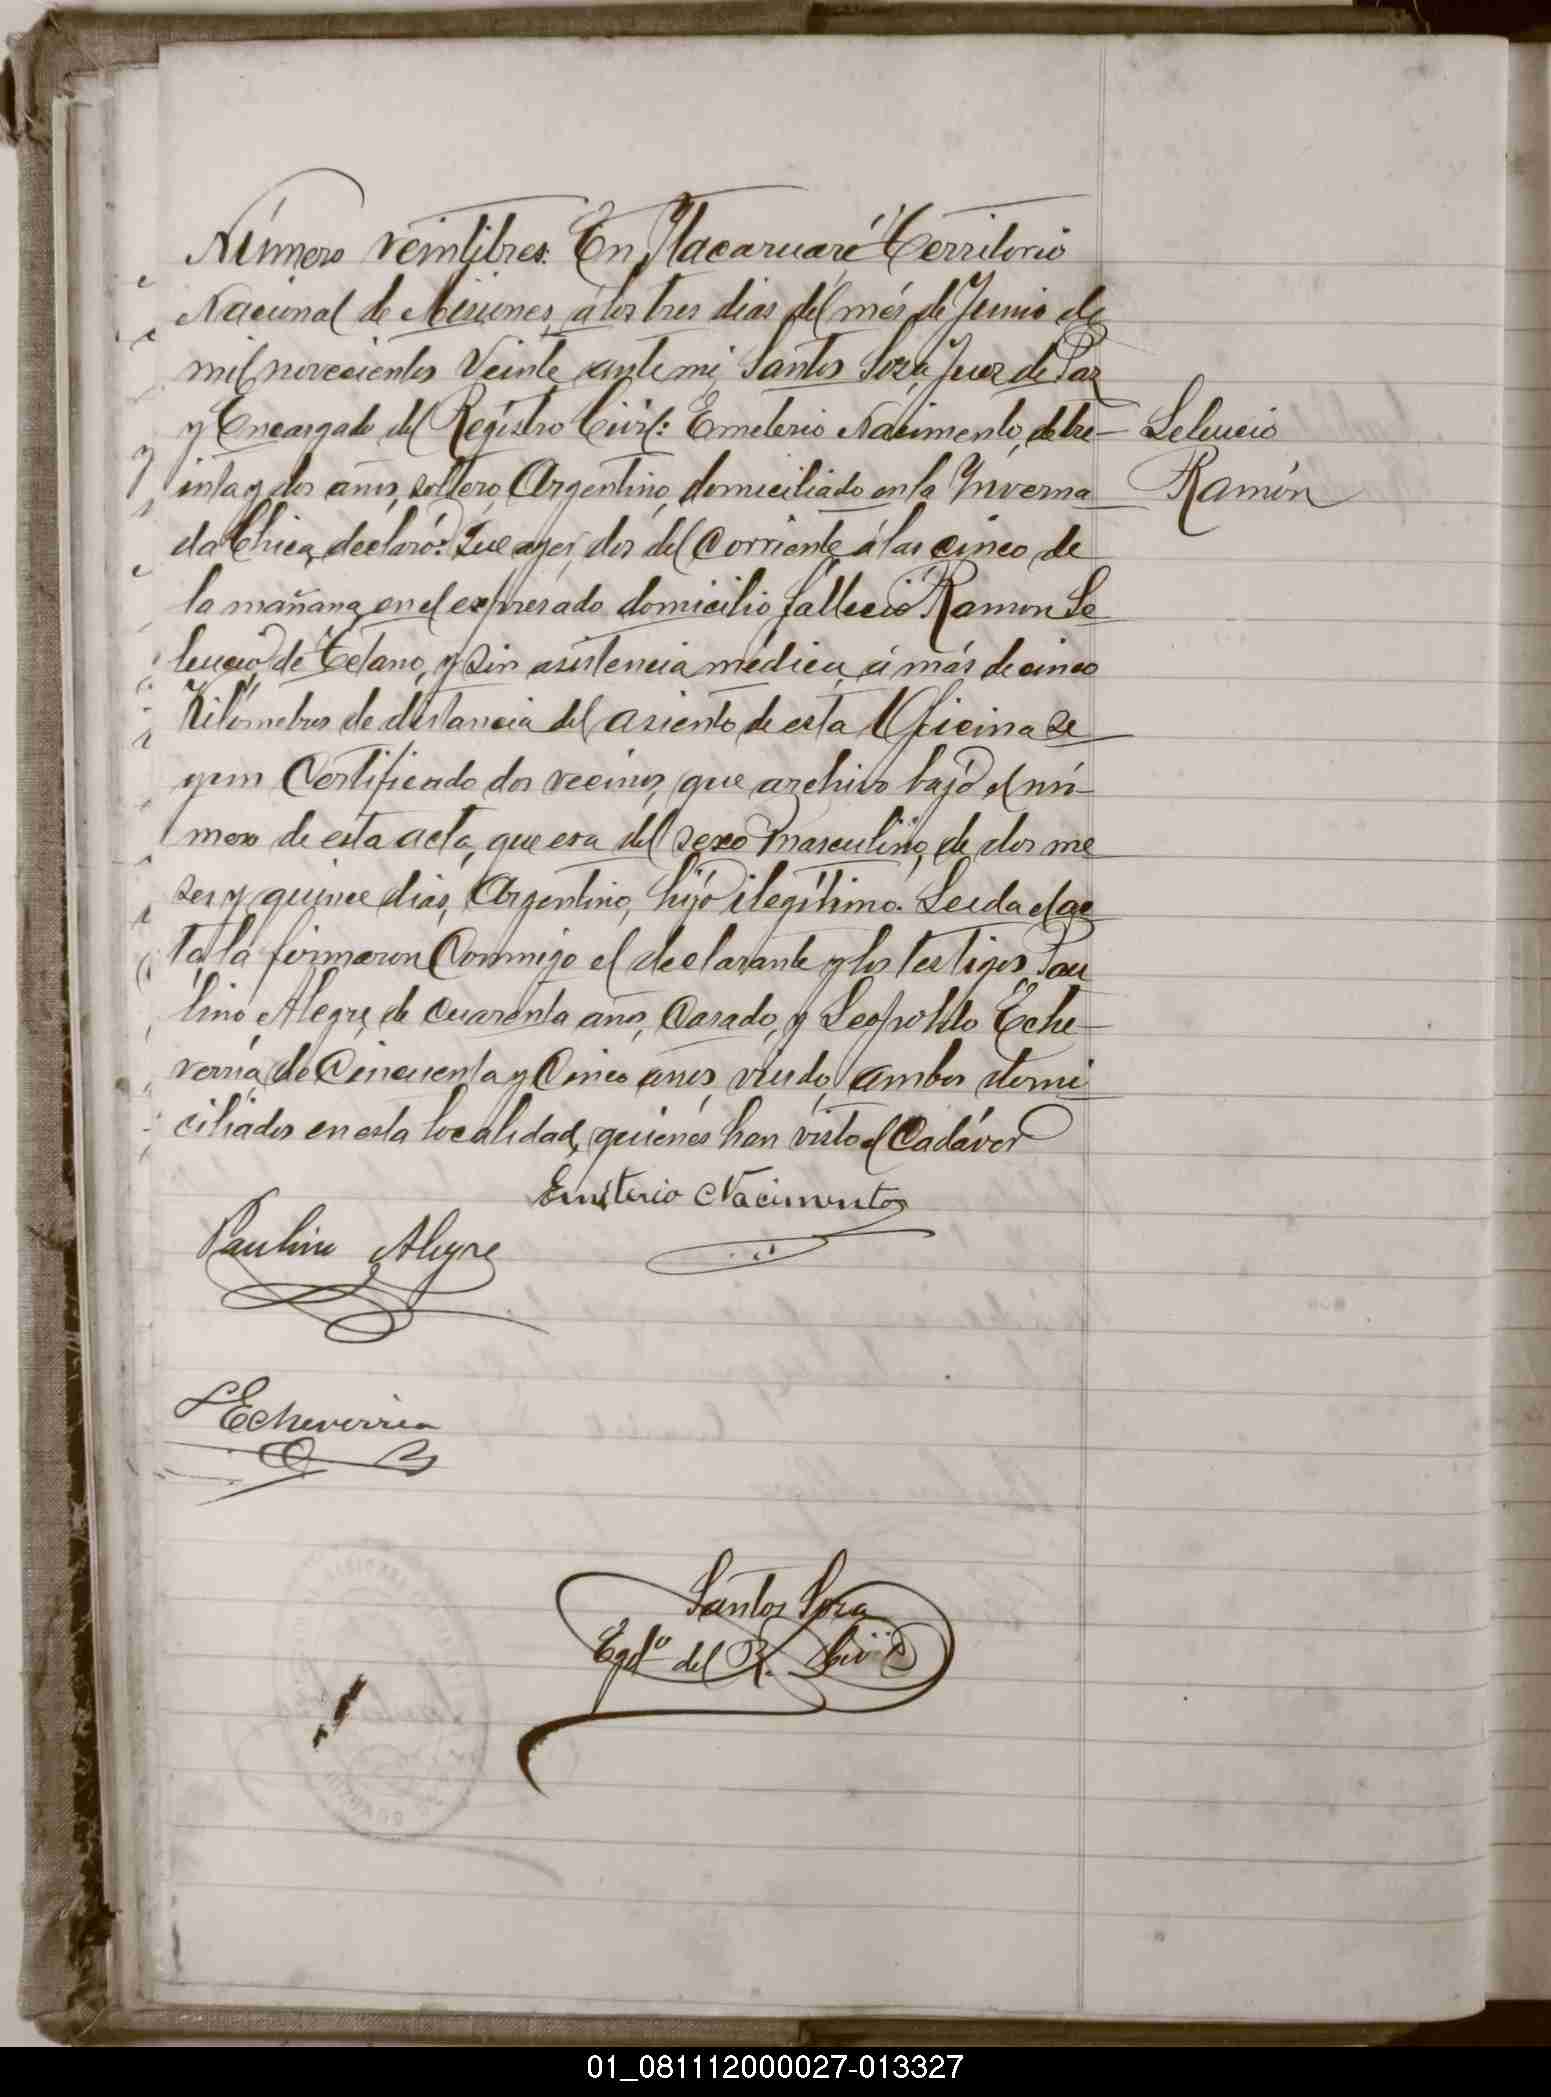 Número veintitres: En Itacaruaré Territorio
Nacional de Misiones, á los tres dias del més de Junio de
mil novecientos Veinte ante mi, Santos Soza, Juez de Paz
y Encargado del Registro Civil: Emeterio Nacimento, de tre-
inta y dos años, soltero, Argentino, domiciliado en la Inverna
da Chica, declaró: Que ayer, dos del Corriente á las cinco de
la mañana, en el expresado domicilio falleció Ramon Se
leucio, de Tetano, y sin asistencia médica, á más de cinco
Kilómetros de distancia del asiento de esta Oficina se
gun Certificado dos vecinos, que archivo bajo el nú-
mero de esta acta, que era del sexo masculino, de dos me
ses y quince dias, Argentino, hijo ilegítimo. Leida el ac
ta la firmaron Conmigo el declarante y los testigos, Pau
lino Alegre, de cuarenta años, Casado, y Leopoldo Eche-
verria, de Cincuenta y Cinco años, viudo, ambos domi
ciliados en esta localidad, quienés han visto el Cadáver
Seleucio
Ramón
Emeterio Nacimento
Paulino Alegre
L Echeverria
Santos Soza
Egdo del R. Civil
01_081112000027-013327